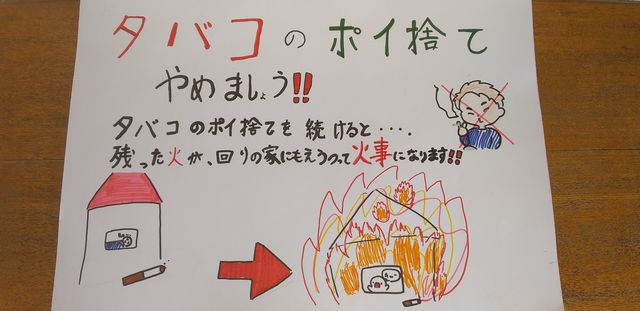 タバコのポイ捨て
やめましょう!!
タバコのポイ捨てを続けると‥‥.
残った火が、回りの家にもえうつって火事になります!!